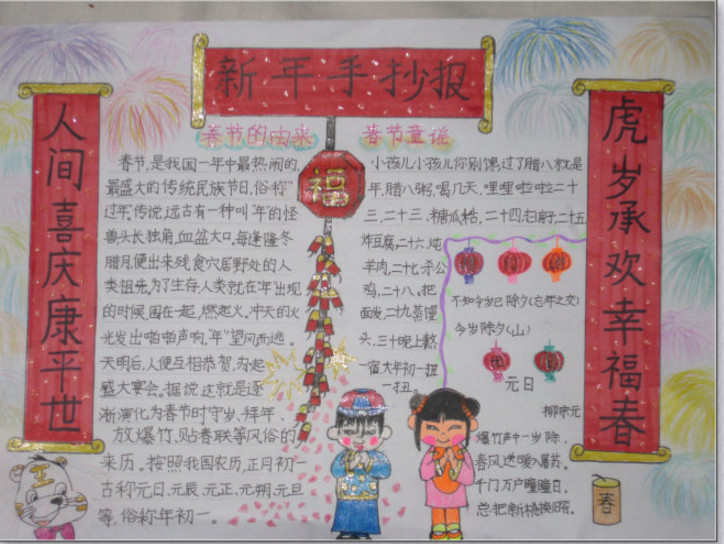 新年手抄报
人间喜庆康平世
虎岁承欢幸福春
春节的由来
春节,是我国一年中最热闹的,
最盛大的传统民族节日,俗称"
过年"传说,远古有一种叫"年"的怪
兽头长独角,血盆大口,每逢隆冬
腊月,便出来残食穴居野处的人
类祖先,为了生存人类就在"年"出现
的时候,围在一起,燃起火,冲天的火
光发出啪啪声响,"年"望风而逃。
天明后,人便互相恭贺,为起
盛大宴会。据说这就是逐
渐演化为春节时守岁、拜年、
放爆竹,贴春联等风俗的
来历。按照我国农历,正月初一
古称元日、元辰、元正、元朔、元旦
等,俗称年初一。
福
春节童谣
小孩儿小孩儿你别馋,过了腊八就是
年,腊八粥,喝几天,哩哩啦啦二十
三,二十三,糖瓜粘,二十四,扫房子,二十五
炸豆腐,二十六,炖
羊肉,二十七,杀公
鸡,二十八、把
面发,二十九,蒸馒
头,三十晚上熬
一宿大年初一扭
一扭。
不知今岁已除夕
今岁除夕(山)
元日
爆竹声中一岁除,
春风送暖入屠苏。
千门万户曈曈日,
总把新桃换旧符。
春
王